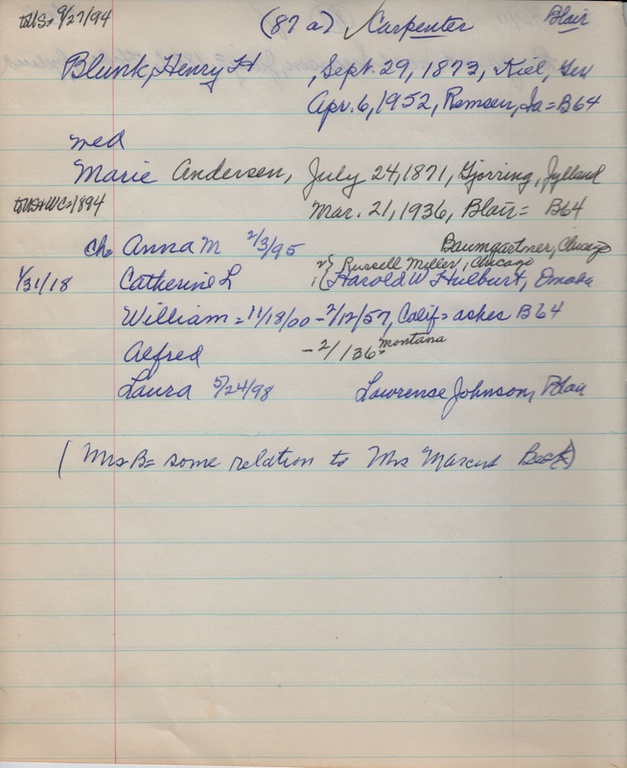 to US = 9/27/94 (87a) Carpenter Blair
Blunk, Henry H , Sept. 29, 1873, Kiel, Ger
Apr. 6, 1952, Remsen, Ia = B64
med
Marie Andersen, July 24, 1871, Hjorring, Jylland
to US & WC = 1894 Mar. 21, 1936, Blair = B64
ch Anna M 2/3/95 Baumgartner, Chicago
2) Russell Miller, Chicago
1/31/18 Catherine L 1( Harold W Hulburt, Omaha
William = 11/18/00 - 2/12/57, Calif = ashes B64
Alfred - 2/ /36 = Montana
Laura 5/24/98 Lawrense Johnson, Blair
( Mrs B = some relation to Mrs Marcus Beck)